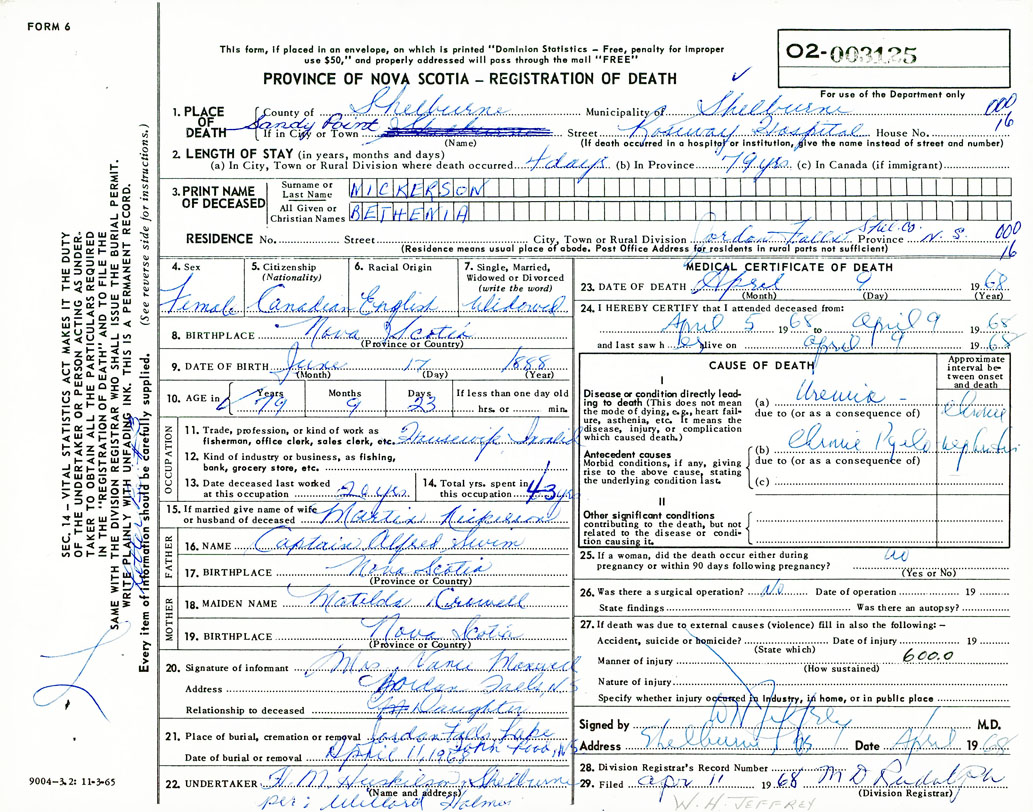 FORM 6
This form, if placed in an envelope, on which is printed "Dominion Statistics – Free, penalty for improper
use $50," and properly addressed will pass through the mail "FREE"
02-003125
PROVINCE OF NOVA SCOTIA – REGISTRATION OF DEATH
For use of the Department only
1. PLACE OF DEATH County of Shelburne Municipality of Shelburne 000
Sandy Point If in City or Town Street Roseway Hospital House No. 16
(Name) (If death occurred in a hospital or institution, give the name instead of street and number)
2. LENGTH OF STAY (in years, months and days)
(a) In City, Town or Rural Division where death occurred 4 days (b) In Province 79 yrs. (c) In Canada (if immigrant)
3. PRINT NAME OF DECEASED
Surname or Last Name NICKERSON
All Given or Christian Names BETHEMIA
RESIDENCE No. Street City, Town or Rural Division Jordan Falls Shel. Co. Province N.S. 000
(Residence means usual place of abode. Post Office Address for residents in rural parts not sufficient) 16
4. Sex Female
5. Citizenship (Nationality) Canadian
6. Racial Origin English
7. Single, Married, Widowed or Divorced (write the word) Widowed
8. BIRTHPLACE Nova Scotia
(Province or Country)
9. DATE OF BIRTH June 17 1888
(Month) (Day) (Year)
10. AGE in Years 79 Months 9 Days 23 If less than one day old hrs. or min.
OCCUPATION
11. Trade, profession, or kind of work as fisherman, office clerk, sales clerk, etc. Housewife Invalid
12. Kind of industry or business, as fishing, bank, grocery store, etc.
13. Date deceased last worked at this occupation 20 yrs.
14. Total yrs. spent in this occupation 43 yrs
15. If married give name of wife or husband of deceased Martin Nickerson
FATHER
16. NAME Captain Alfred Swim
17. BIRTHPLACE Nova Scotia
(Province or Country)
MOTHER
18. MAIDEN NAME Matilda Crowell
19. BIRTHPLACE Nova Scotia
(Province or Country)
20. Signature of informant Mrs. Vance
Address Jordan Falls, N.S.
Relationship to deceased Daughter
21. Place of burial, cremation or removal Jordan Falls
Date of burial or removal April 11, 1968
22. UNDERTAKER H. M. Huskilson Shelburne
(Name and address)
per: Willard Holmes
MEDICAL CERTIFICATE OF DEATH
23. DATE OF DEATH April 9 1968
(Month) (Day) (Year)
24. I HEREBY CERTIFY that I attended deceased from:
April 5 1968 to April 9 1968
and last saw her alive on april 9 1968
CAUSE OF DEATH
Approximate interval between onset and death
I
Disease or condition directly leading to death (This does not mean the mode of dying, e.g., heart failure, asthenia, etc. It means the disease, injury, or complication which caused death.)
(a) Uremia - Chronic
due to (or as a consequence of)
Antecedent causes
Morbid conditions, if any, giving rise to the above cause, stating the underlying condition last.
(b) Chronic Pyelonephritis
due to (or as a consequence of)
(c)
II
Other significant conditions
contributing to the death, but not related to the disease or condition causing it.
25. If a woman, did the death occur either during pregnancy or within 90 days following pregnancy? no
(Yes or No)
26. Was there a surgical operation? No Date of operation 19
State findings Was there an autopsy?
27. If death was due to external causes (violence) fill in also the following: –
Accident, suicide or homicide? Date of injury 19
(State which)
Manner of injury 600.0
(How sustained)
Nature of injury
Specify whether injury occurred in industry, in home, or in public place
Signed by W H Jeffrey M.D.
Address Shelburne NS Date April 1968
28. Division Registrar's Record Number
29. Filed apr 11 1968 M D Rudolph
(Division Registrar)
W. H. JEFFREY
SEC. 14 – VITAL STATISTICS ACT MAKES IT THE DUTY
OF THE UNDERTAKER OR PERSON ACTING AS UNDER-
TAKER TO OBTAIN ALL THE PARTICULARS REQUIRED
IN THE "REGISTRATION OF DEATH" AND TO FILE THE
SAME WITH THE DIVISION REGISTRAR WHO SHALL ISSUE THE BURIAL PERMIT.
WRITE PLAINLY WITH UNFADING INK. THIS IS A PERMANENT RECORD.
Every item of information should be carefully supplied. (See reverse side for instructions.)
9004-3.2: 11-3-65